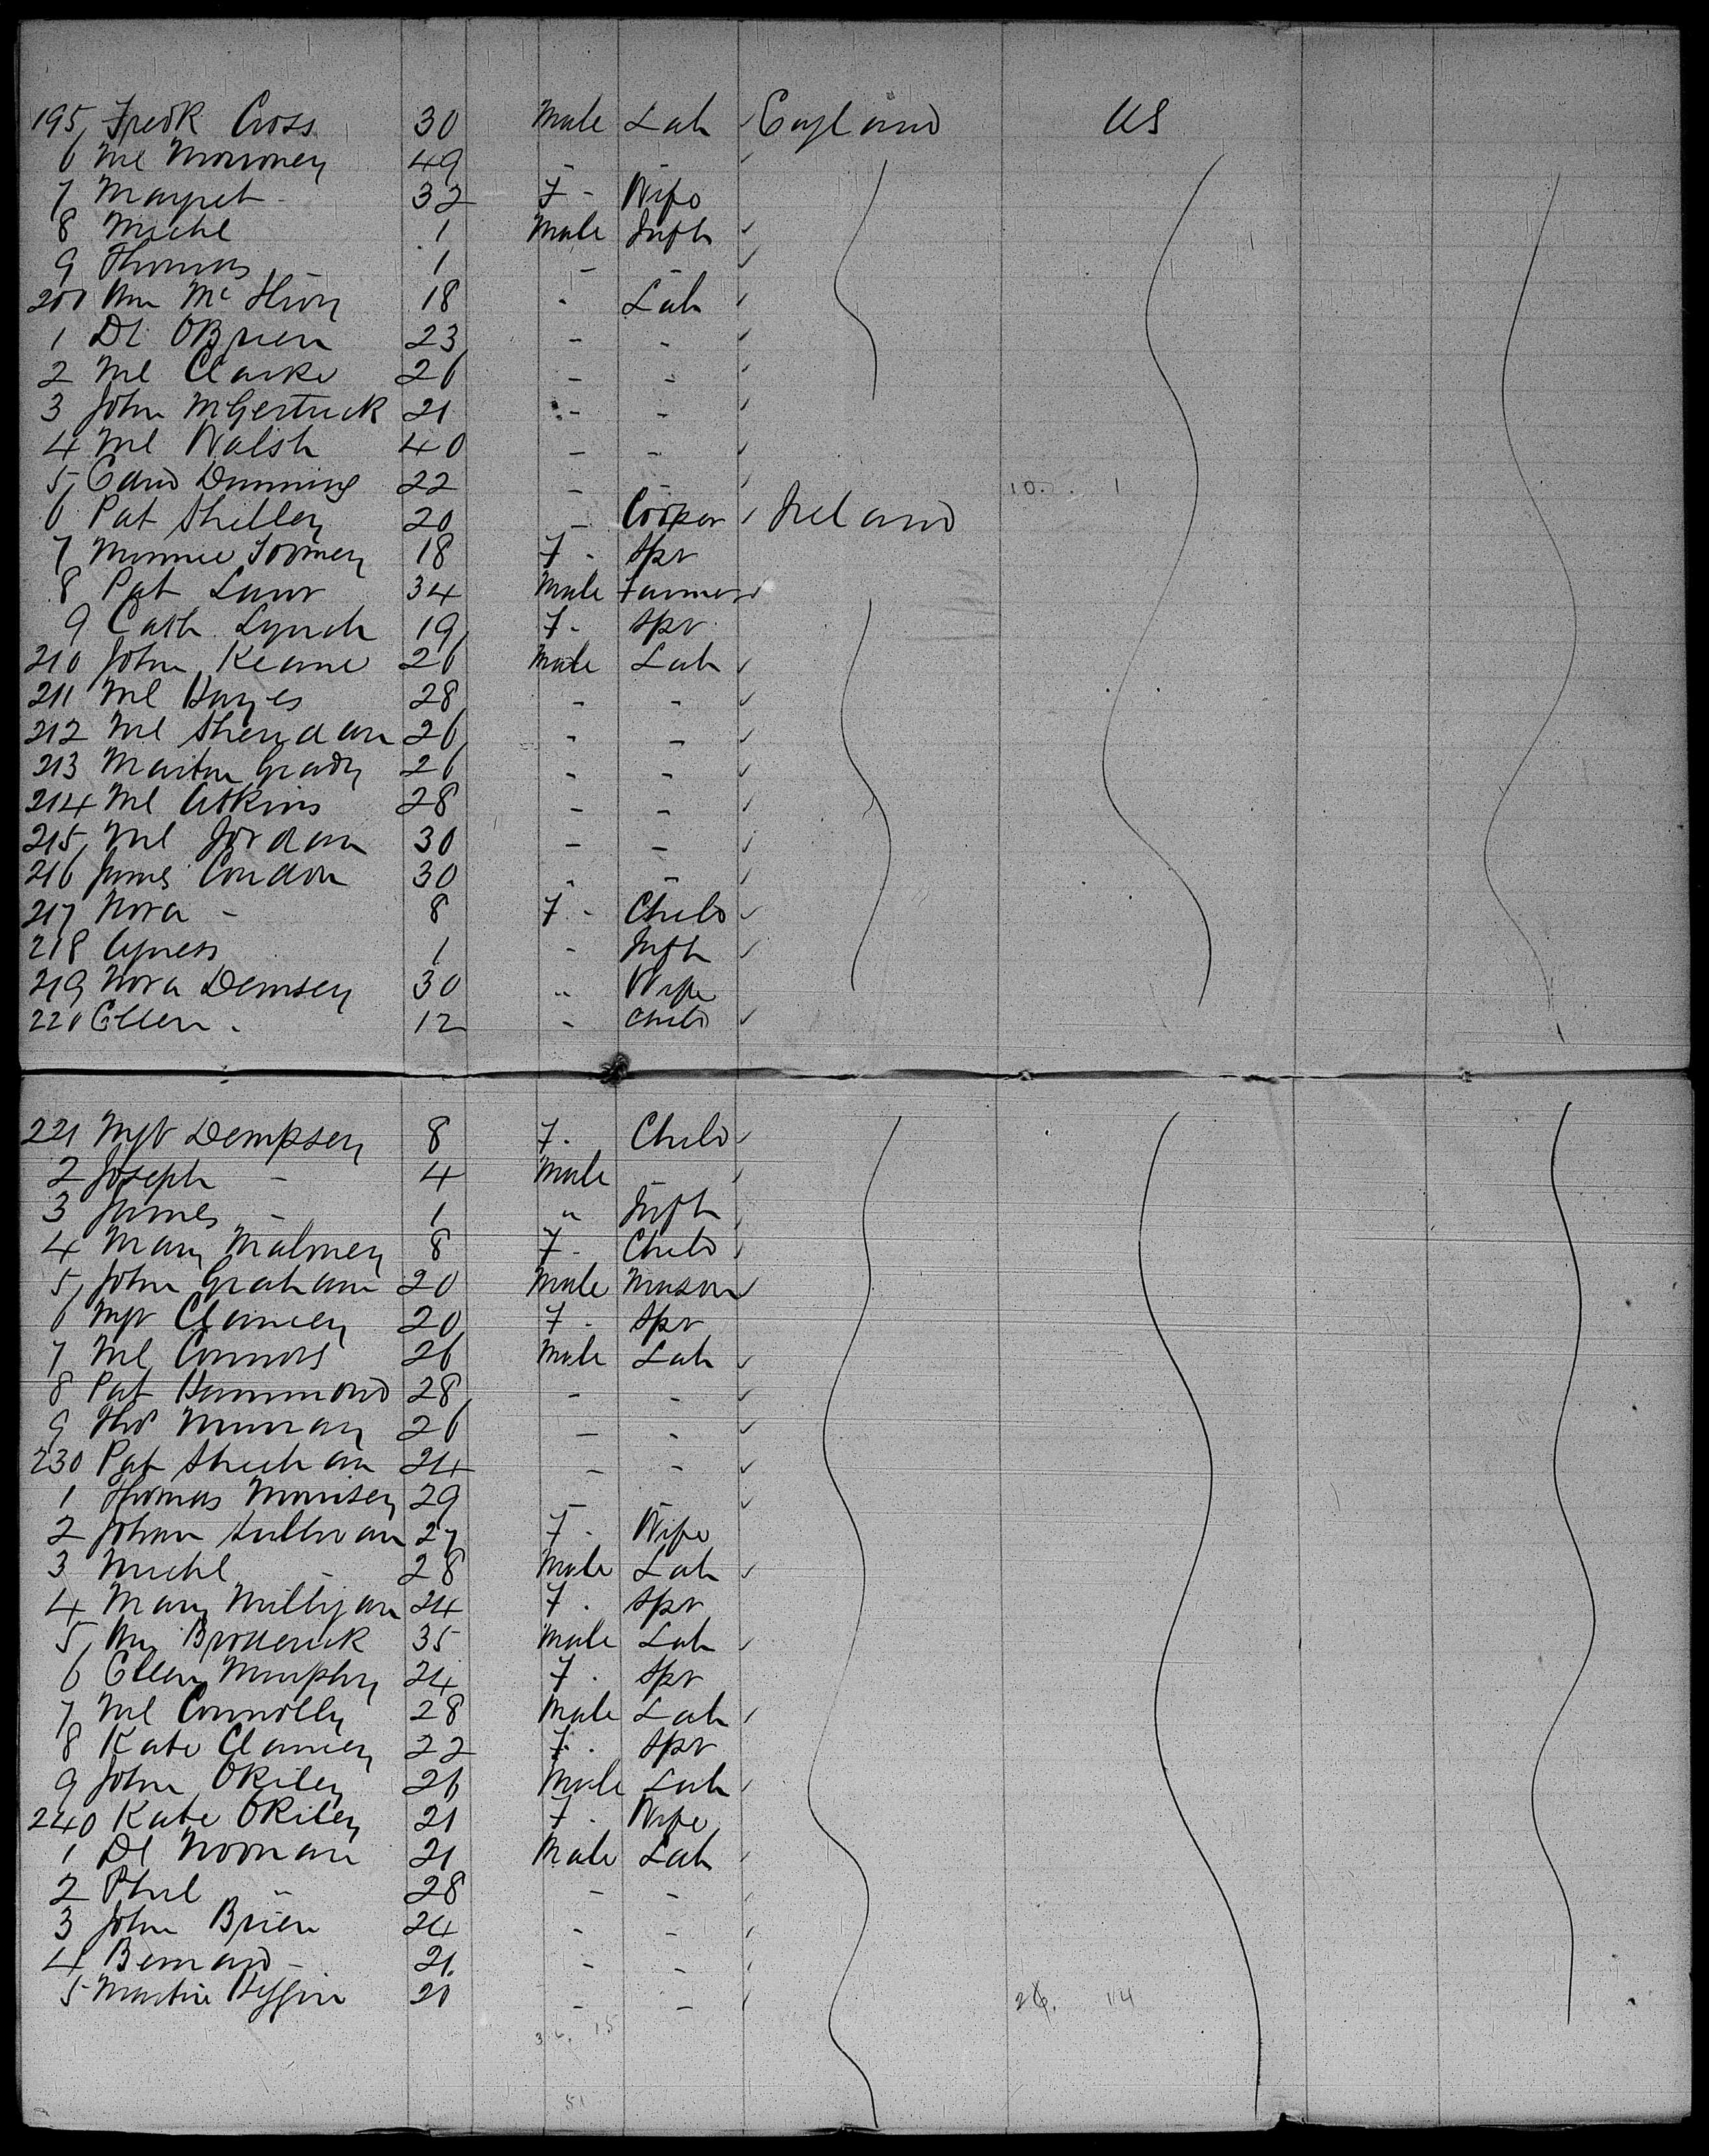 195, Fredk Cross 30 Male Lab ✓ England US
6 Ml Moroney 49 - - ✓
7 Margret - 32 F - Wife
8 Michl 1 Male Infth ✓
9 Thomas - 1 - - ✓
200 Wm Mc 18 - Lab ✓
1 Dl OBrien 23 - - ✓
2 Ml Clarke 26 - - ✓
3 John 21 - - ✓
4 Ml Walsh 40 - - ✓
5, Edwd Dunning 22 - - ✓ 10. 1
6 Pat Shelley 20 - Cooper ✓ Ireland
7 Minnie 18 F - Spr
8 Pat 34 Male Farmer ✓
9 Cath Lynch 19 F - Spr
210 John Keane 26 Male Lab ✓
211 Ml Hayes 28 - - ✓
212 Ml Sheridan 26 - - ✓
213 Martin Grady 26 - - ✓
214 Ml Atkins 28 - - ✓
215, Ml Jordan 30 - - ✓
216 James Condon 30 - - ✓
217 Nora - 8 F - Child ✓
218 Agness 1 - Infth ✓
219 Nora Demsey 30 " Wife
220 Ellen - 12 - Child ✓
221 Mgt Dempsey 8 F. Child ✓
2 Joseph - 4 Male - ✓
3 James - 1 " Infth ✓
4 Mary Malmey 8 F - Child ✓
5, John Graham 20 Male Mason ✓
6 Mgt Clancey 20 F - Spr
7 Ml Connors 26 Male Lab ✓
8 Pat Hammond 28 - - ✓
9 Thos Murray 26 - - ✓
230 Pat Sheehan 24 - - ✓
1 Thomas Morrisey 29 - - ✓
2 Johan Sullivan 27 F. Wife
3 Michl - 28 Male Lab ✓
4 Mary Milligan 24 F. Spr
5, Broderick 35 Male Lab ✓
6 Ellen Murphy 24 F. Spr
7 Ml Connolly 28 Male Lab ✓
8 Kate Clancey 22 F. Spr
9 John ORiley 26 Male Lab ✓
240 Kate ORiley 21 F. Wife
1 Dl Noonan 21 Male Lab ✓
2 Phil - 28 - - ✓
3 John Brien 24 - - ✓
4 Bernard - 21. - - ✓
5 Martin Heffin 20 - - ✓ 26. 14
36. 15
51